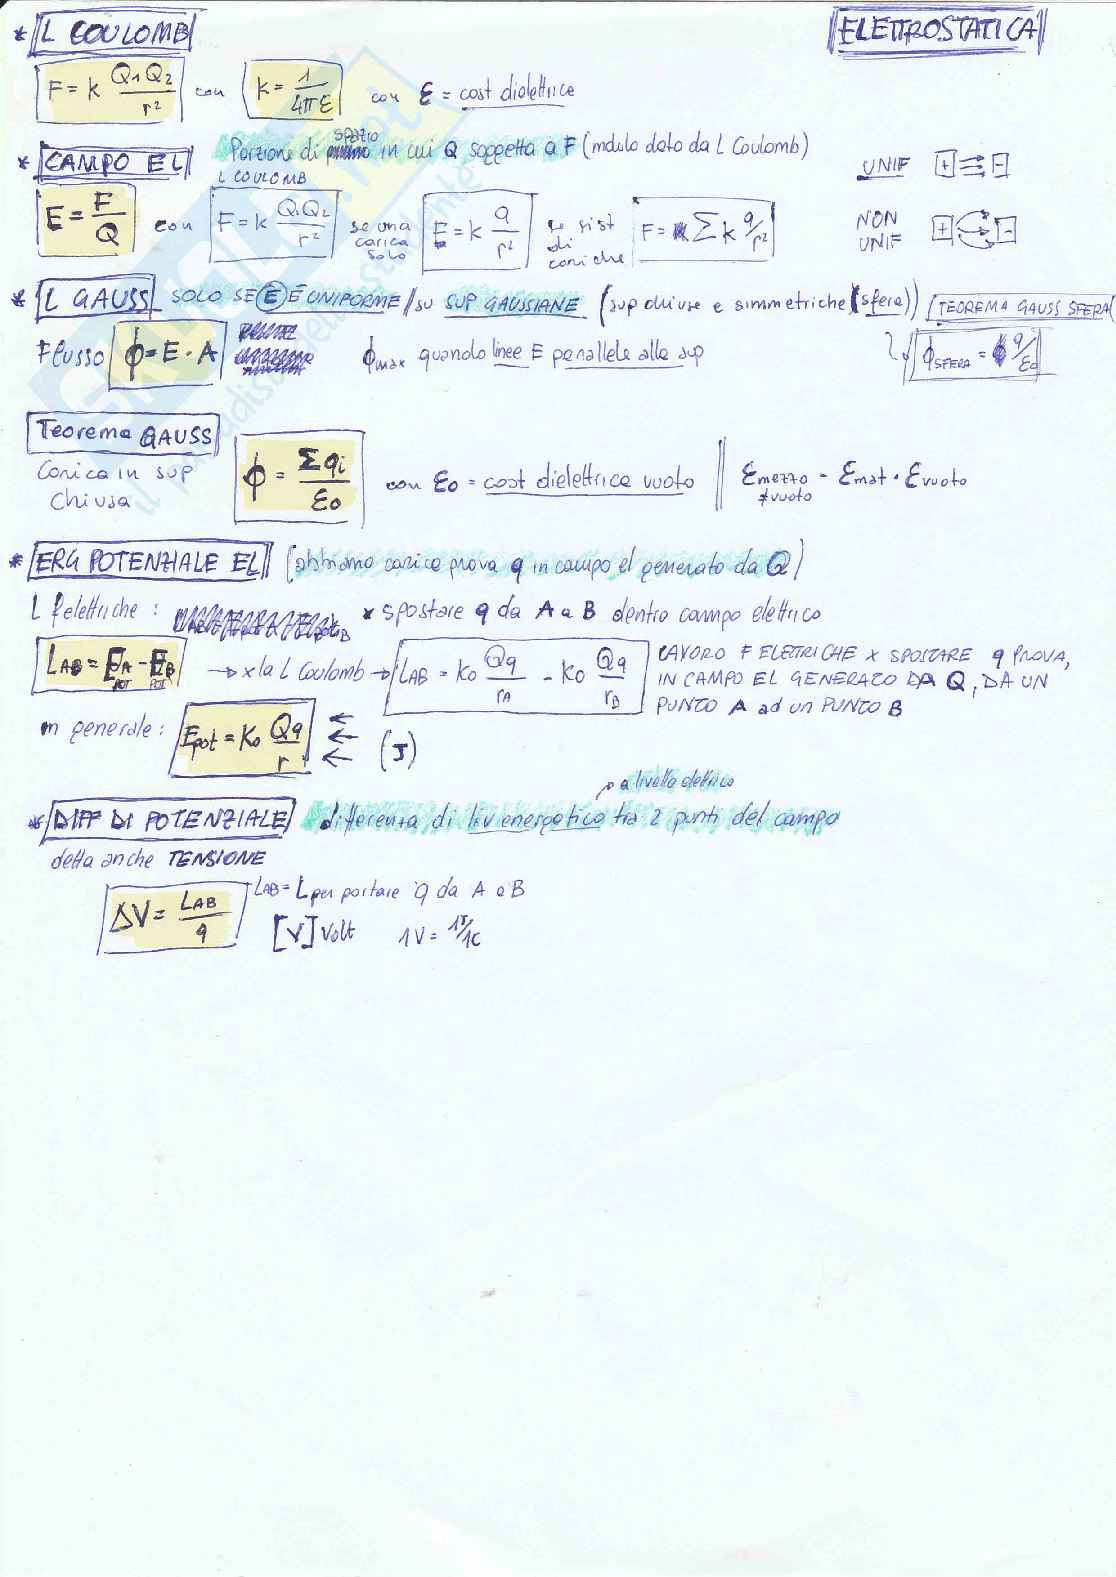 * L COULOMB
ELETTROSTATICA
F = k Q1Q2/r² con k = 1/4πε con ε = cost dielettrica
* CAMPO EL Porzione di spazio in cui Q soggetta a F (modulo dato da L Coulomb)
UNIF + -
L COULOMB
E = F/Q con F = k Q1Q2/r² se una carica solo E = k q/r² se sist di cariche F = Σ k q/r²
NON UNIF + -
* L GAUSS SOLO SE E È UNIFORME / su SUP GAUSSIANE (sup chiuse e simmetriche (sfera)) TEOREMA GAUSS SFERA
Flusso ϕ = E · A ϕmax quando linee E parallele alla sup ϕSFERA = q/ε0
Teorema GAUSS
Carica in sup chiusa ϕ = Σqi/ε0 con ε0 = cost dielettrica vuoto || εmezzo ≠vuoto = εmat · εvuoto
* ERG POTENZIALE EL (abbiamo carica prova q in campo el generato da Q)
L f elettriche : x spostare q da A a B dentro campo elettrico
LAB = EA POT - EB POT → x la L Coulomb → LAB = K0 Qq/rA - K0 Qq/rB
LAVORO F ELETTRICHE X SPOSTARE q PROVA,
IN CAMPO EL GENERATO DA Q, DA UN
PUNTO A ad un PUNTO B
in generale : Epot = K0 Qq/r ← ← ← (J)
→ a livello elettrico
* DIFF DI POTENZIALE differenza di liv energetico tra 2 punti del campo
detta anche TENSIONE
ΔV = LAB/q LAB = L per portare q da A a B
[V] Volt 1V = 1J/1C
SKUOLA.net
il paradiso dello studente